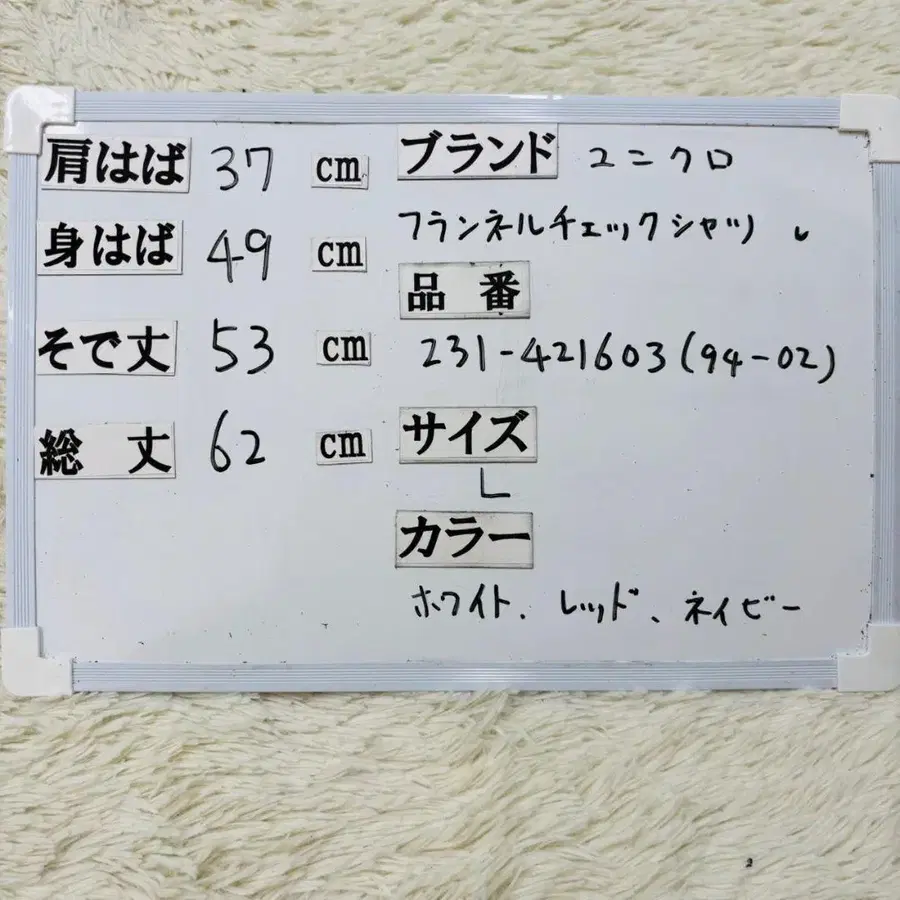 肩はば 37 cm
身はば 49 cm
そで丈 53 cm
総 丈 62 cm
ブランド ユニクロ
フランネルチェックシャツ
品 番
231-421603(94-02)
サイズ
L
カラー
ホワイト、レッド、ネイビー